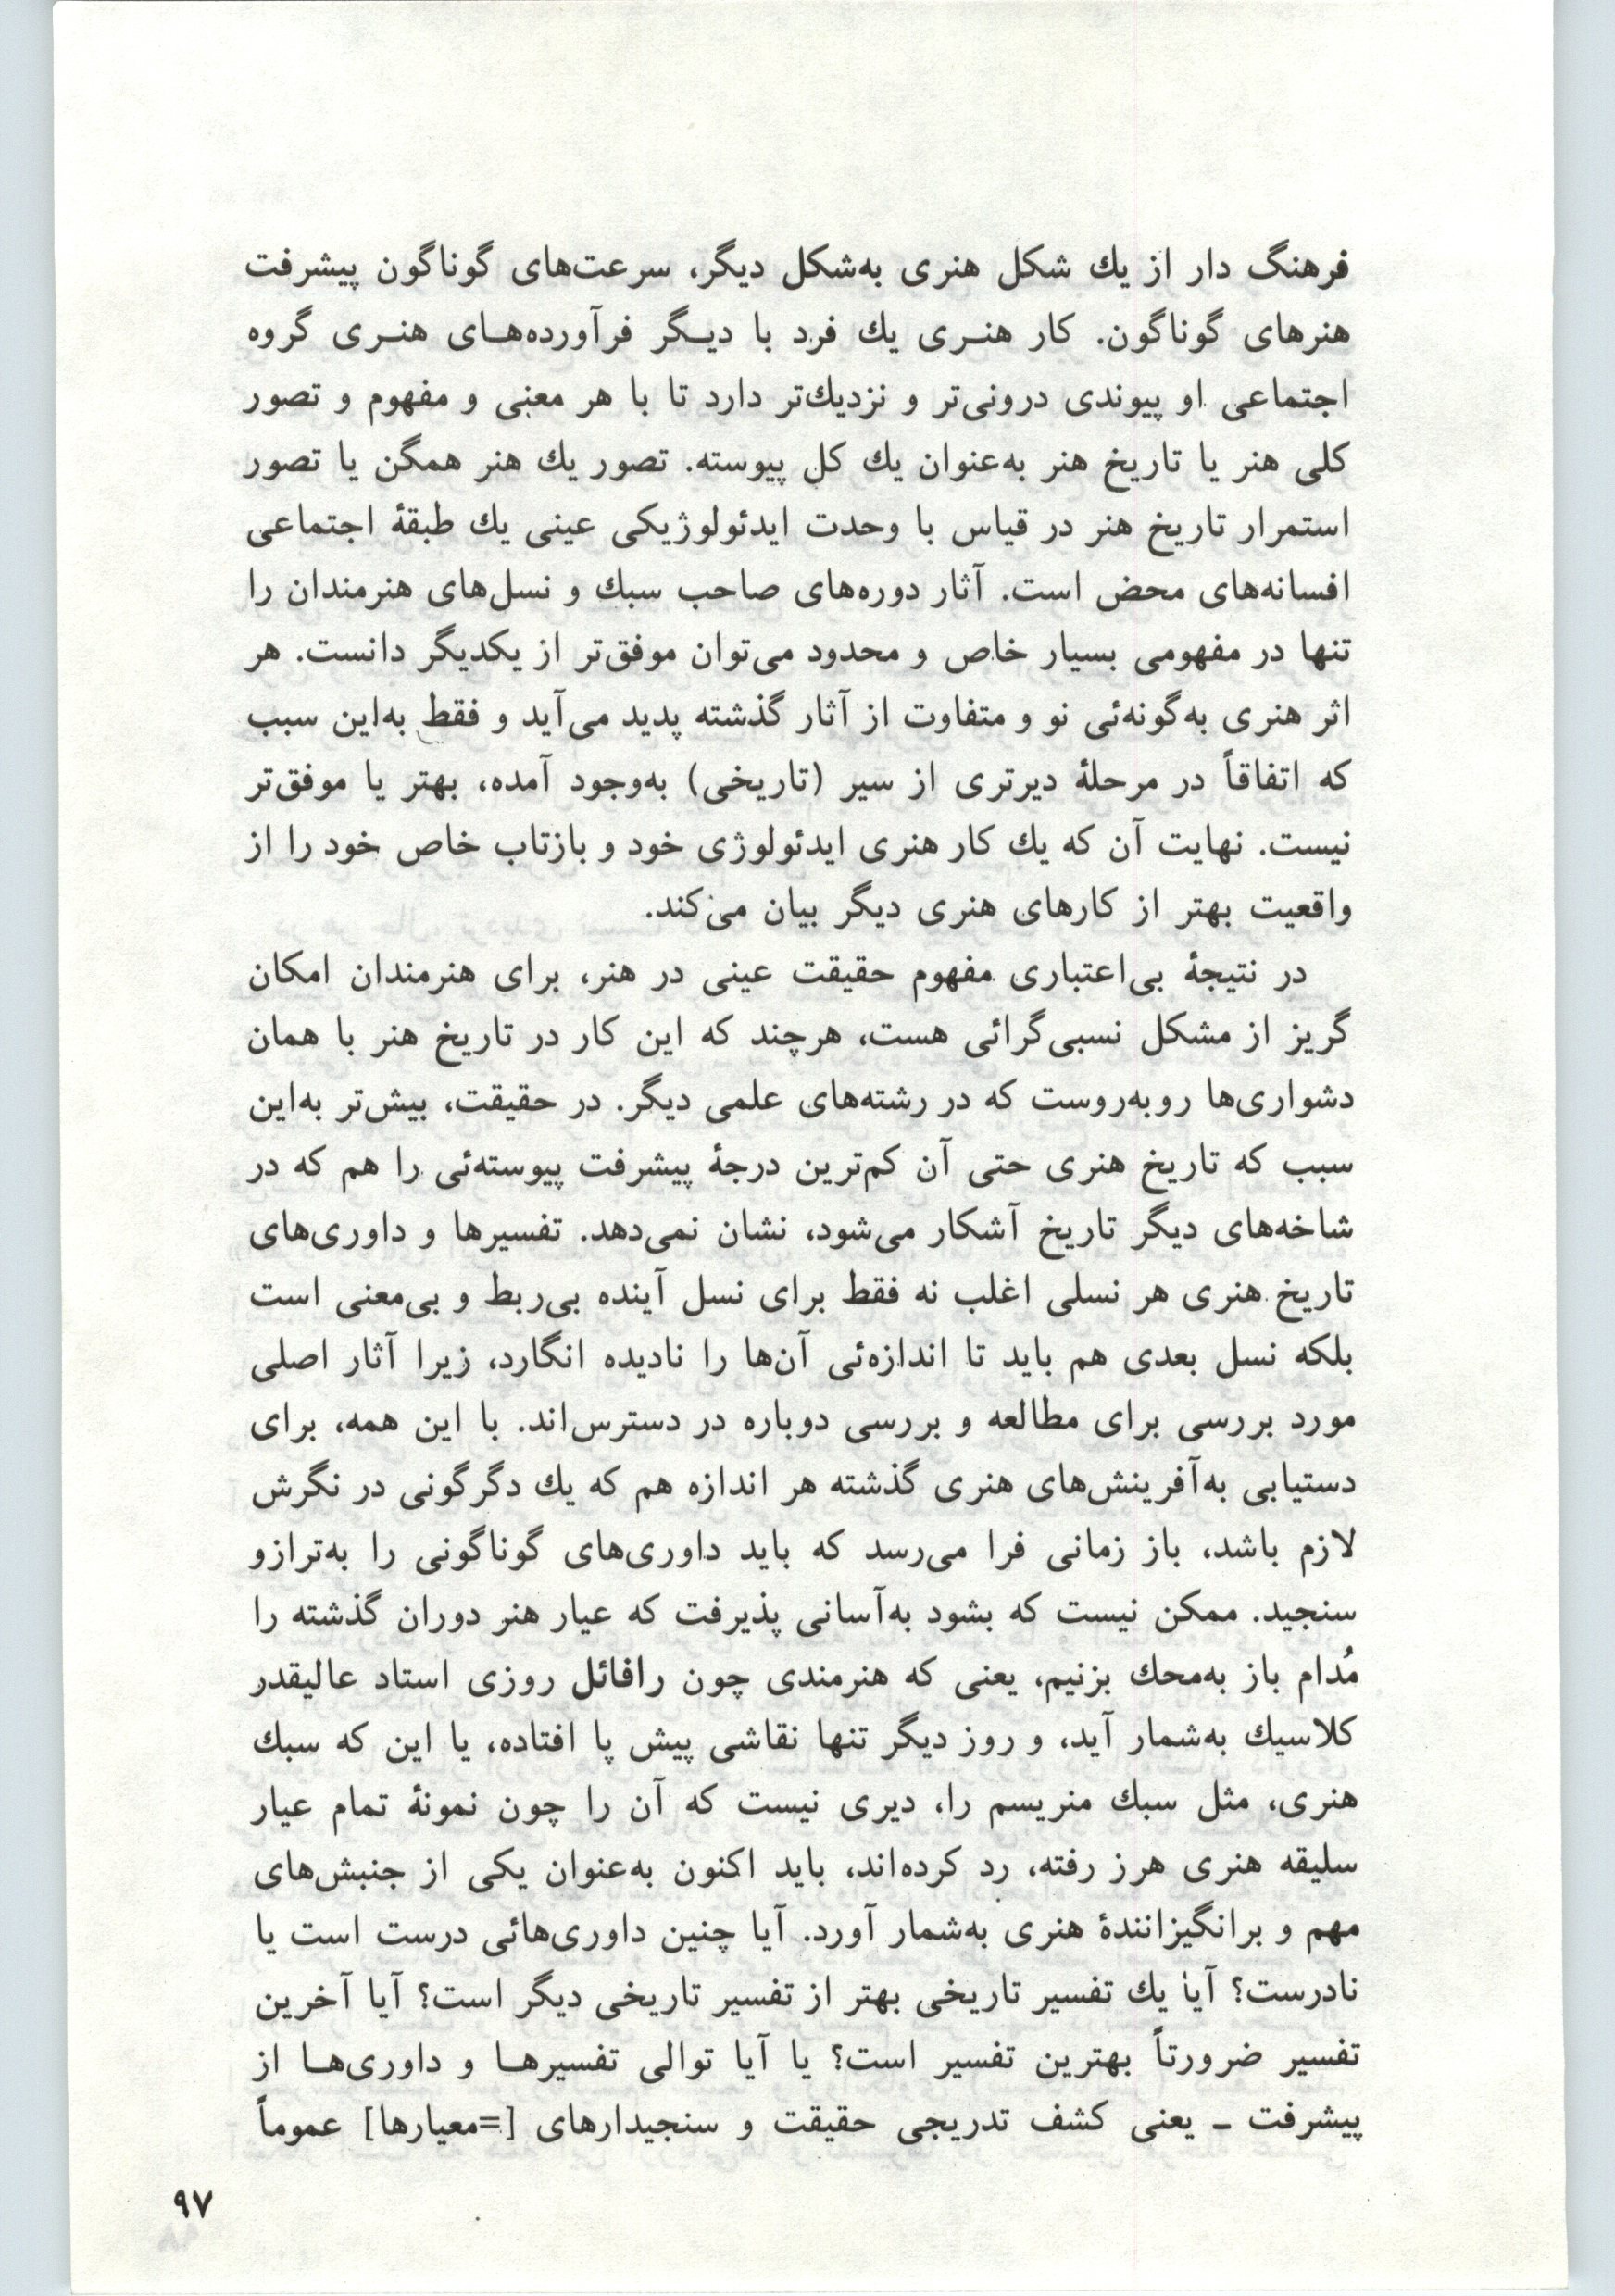 فرهنگ دار از یك شکل هنری به‌شکل دیگر، سرعت‌های گوناگون پیشرفت
هنرهای گوناگون. کار هنـری یك فرد با دیـگر فرآورده‌هـای هنـری گروه
اجتماعی او پیوندی درونی‌تر و نزدیك‌تر دارد تا با هر معنی و مفهوم و تصور
کلی هنر یا تاریخ هنر به‌عنوان یك کل پیوسته. تصور یك هنر همگن یا تصور
استمرار تاریخ هنر در قیاس با وحدت ایدئولوژیکی عینی یك طبقهٔ اجتماعی
افسانه‌های محض است. آثار دوره‌های صاحب سبك و نسل‌های هنرمندان را
تنها در مفهومی بسیار خاص و محدود می‌توان موفق‌تر از یکدیگر دانست. هر
اثر هنری به‌گونه‌ئی نو و متفاوت از آثار گذشته پدید می‌آید و فقط به‌این سبب
که اتفاقاً در مرحلهٔ دیرتری از سیر (تاریخی) به‌وجود آمده، بهتر یا موفق‌تر
نیست. نهایت آن که یك کار هنری ایدئولوژی خود و بازتاب خاص خود را از
واقعیت بهتر از کارهای هنری دیگر بیان می‌کند.
در نتیجهٔ بی‌اعتباری مفهوم حقیقت عینی در هنر، برای هنرمندان امکان
گریز از مشکل نسبی‌گرائی هست، هرچند که این کار در تاریخ هنر با همان
دشواری‌ها روبه‌روست که در رشته‌های علمی دیگر. در حقیقت، بیش‌تر به‌این
سبب که تاریخ هنری حتی آن کم‌ترین درجهٔ پیشرفت پیوسته‌ئی را هم که در
شاخه‌های دیگر تاریخ آشکار می‌شود، نشان نمی‌دهد. تفسیرها و داوری‌های
تاریخ هنری هر نسلی اغلب نه فقط برای نسل آینده بی‌ربط و بی‌معنی است
بلکه نسل بعدی هم باید تا اندازه‌ئی آن‌ها را نادیده انگارد، زیرا آثار اصلی
مورد بررسی برای مطالعه و بررسی دوباره در دسترس‌اند. با این همه، برای
دستیابی به‌آفرینش‌های هنری گذشته هر اندازه هم که یك دگرگونی در نگرش
لازم باشد، باز زمانی فرا می‌رسد که باید داوری‌های گوناگونی را به‌ترازو
سنجید. ممکن نیست که بشود به‌آسانی پذیرفت که عیار هنر دوران گذشته را
مُدام باز به‌محك بزنیم، یعنی که هنرمندی چون رافائل روزی استاد عالیقدر
کلاسیك به‌شمار آید، و روز دیگر تنها نقاشی پیش پا افتاده، یا این که سبك
هنری، مثل سبك منریسم را، دیری نیست که آن را چون نمونهٔ تمام عیار
سلیقه هنری هرز رفته، رد کرده‌اند، باید اکنون به‌عنوان یکی از جنبش‌های
مهم و برانگیزانندهٔ هنری به‌شمار آورد. آیا چنین داوری‌هائی درست است یا
نادرست؟ آیا یك تفسیر تاریخی بهتر از تفسیر تاریخی دیگر است؟ آیا آخرین
تفسیر ضرورتاً بهترین تفسیر است؟ یا آیا توالی تفسیرهـا و داوری‌هـا از
پیشرفت ـ یعنی کشف تدریجی حقیقت و سنجیدارهای [=معیارها] عموماً
۹۷